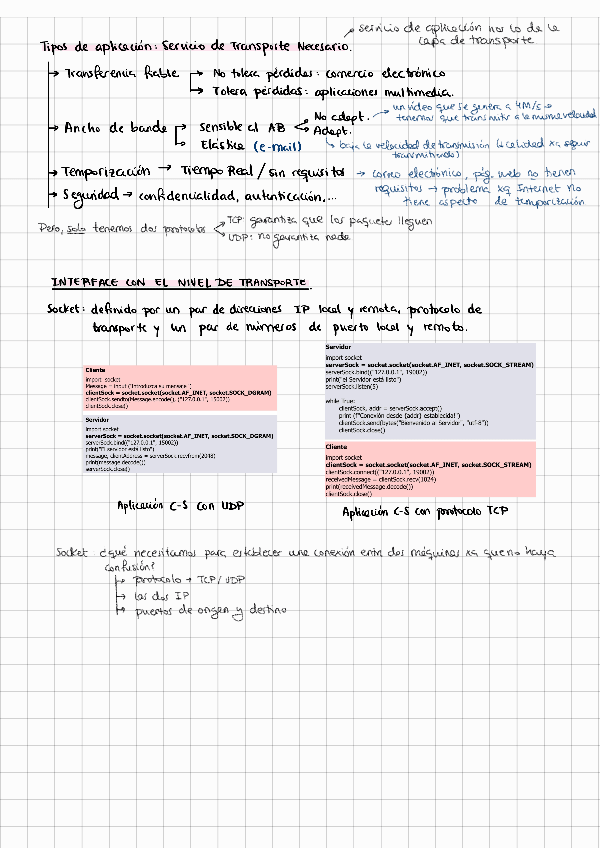 servicio de aplicación no lo da la
capa de transporte
Tipos de aplicación: Servicio de Transporte Necesario.
→ Transferencia fiable → No tolera pérdidas: comercio electrónico
→ Tolera pérdidas: aplicaciones multimedia.
→ Ancho de banda → Sensible al AB No adapt. → un vídeo que se genera a 4M/s →
Adapt. tenemos que transmitir a la misma velocidad
→ Elástica (e-mail) baja la velocidad de transmisión (↓ calidad xa seguir
transmitiendo)
→ Temporización → Tiempo Real / sin requisitos → correo electrónico, pág. web no tienen
requisitos → problema xq Internet no
tiene aspecto de temporización
→ Seguridad → confidencialidad, autenticación,...
Pero, solo tenemos dos protocolos TCP: garantiza que los paquete lleguen
UDP: no garantiza nada
INTERFACE CON EL NIVEL DE TRANSPORTE
Socket: definido por un par de direciones IP local y remota, protocolo de
transporte y un par de números de puerto local y remoto.
Cliente
import socket
Message = input ("Introduzca su mensaje")
clientSock = socket.socket(socket.AF_INET, socket.SOCK_DGRAM)
clientSock.sendto(Message.encode(), ("127.0.0.1", 15002))
clientSock.close()
Servidor
import socket
serverSock = socket.socket(socket.AF_INET, socket.SOCK_DGRAM)
serverSock.bind(("127.0.0.1", 15002))
print("El servidor está listo")
message, clientAddress = serverSock.recvfrom(2048)
print(message.decode())
serverSock.close()
Aplicación C-S con UDP
Servidor
import socket
serverSock = socket.socket(socket.AF_INET, socket.SOCK_STREAM)
serverSock.bind(("127.0.0.1", 19002))
print("el Servidor está listo")
serverSock.listen(5)
while True:
clientSock, addr = serverSock.accept()
print (f"Conexión desde {addr} establecida!")
clientSock.send(bytes("Bienvenido al Servidor", "utf-8"))
clientSock.close()
Cliente
import socket
clientSock = socket.socket(socket.AF_INET, socket.SOCK_STREAM)
clientSock.connect(("127.0.0.1", 19002))
receivedMessage = clientSock.recv(1024)
print(receivedMessage.decode())
clientSock.close()
Aplicación C-S con protocolo TCP
Socket ¿qué necesitamos para establecer una conexión entre dos máquinas xa que no haya
confusión?
→ protocolo → TCP/UDP
→ las dos IP
→ puertos de origen y destino